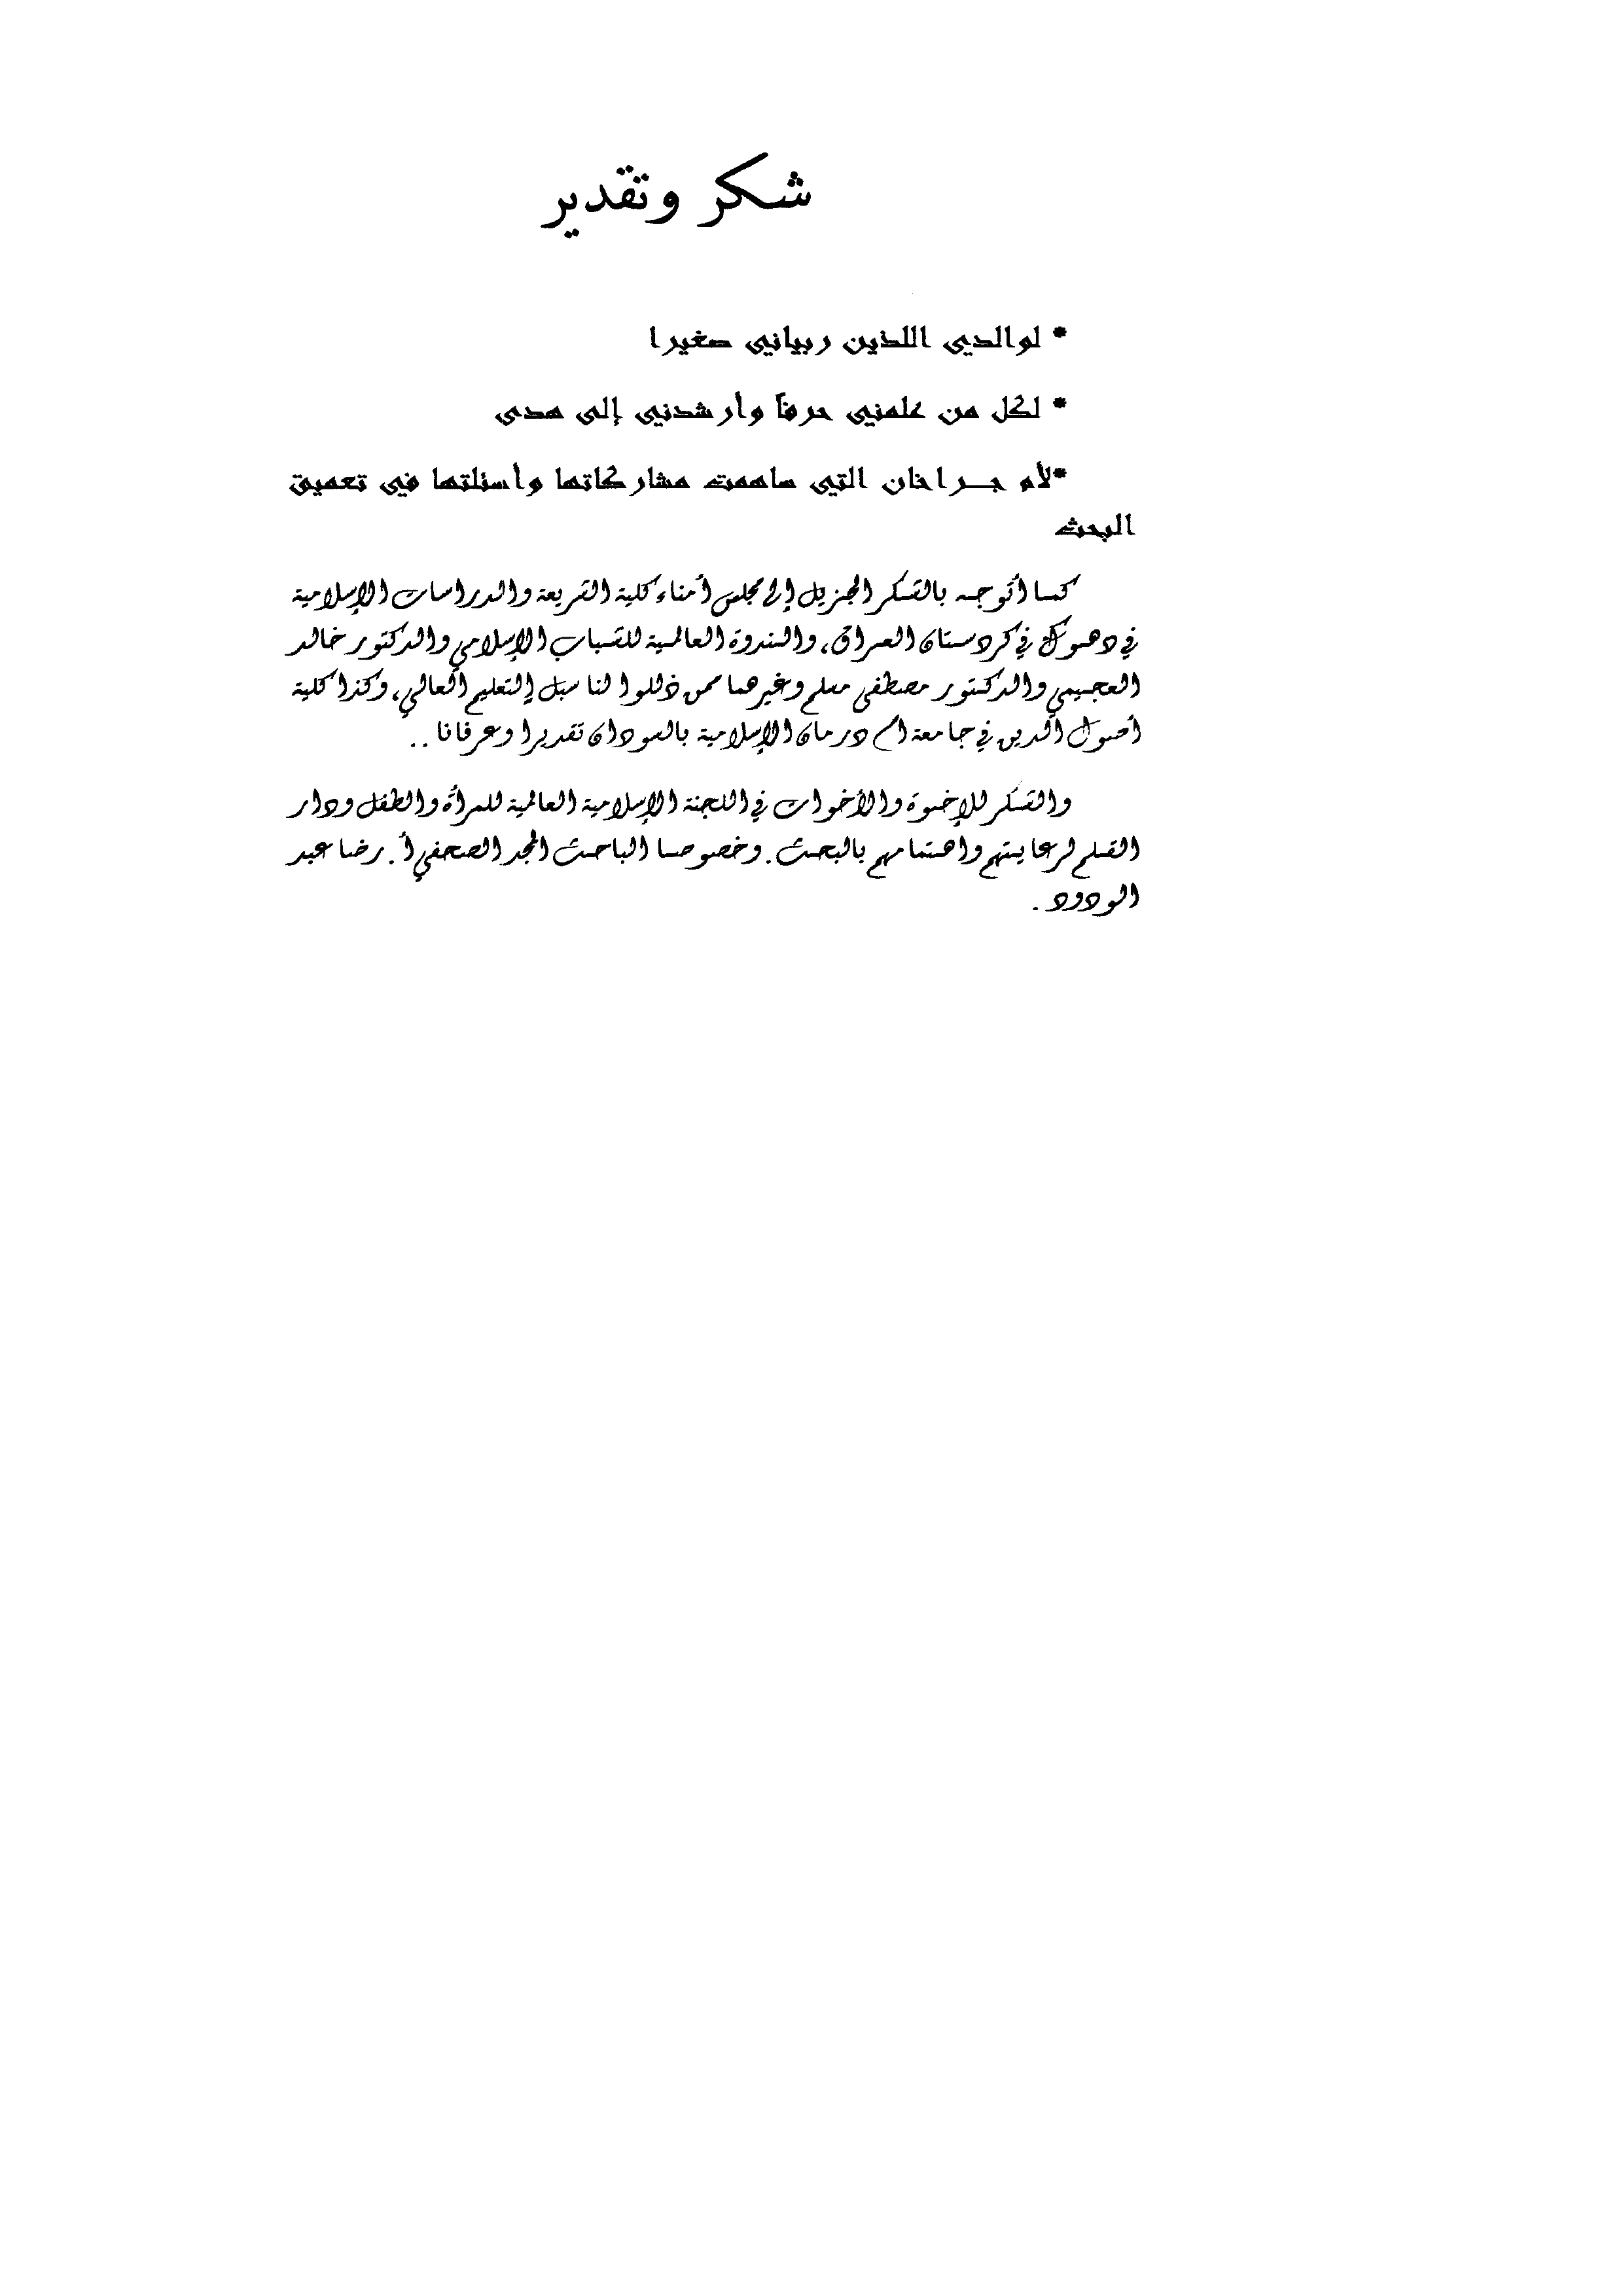 شكر وتقدير
* لوالدي اللذين ربياني صغيرا
* لكل من علمني حرفاً وأرشدني إلى هدى
*لأم جراخان التي ساهمت مشاركاتها وأسئلتها في تعميق
البحث
كما أتوجه بالشكر الجزيل إلى مجلس أمناء كلية الشريعة والدراسات الإسلامية
في دهوك في كردستان العراق، والندوة العالمية للشباب الإسلامي والدكتور خالد
العجيمي والدكتور مصطفى مسلم وغيرهما ممن ذللوا لنا سبل التعليم العالي، وكذا كلية
أصول الدين في جامعة أم درمان الإسلامية بالسودان تقديرا وعرفانا ..
والشكر للإخوة والأخوات في اللجنة الإسلامية العالمية للمرأة والطفل ودار
القلم لرعايتهم واهتمامهم بالبحث . وخصوصا الباحث المجد الصحفي أ . رضا عبد
الودود .